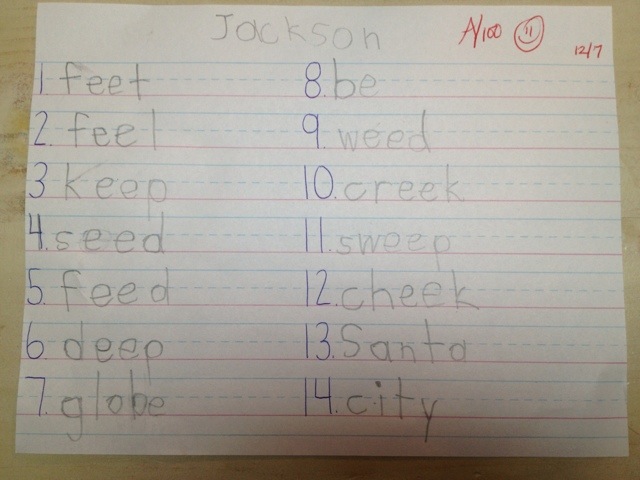 Jackson
A/100
12/7
1. feet
2. feel
3 keep
4. seed
5. feed
6. deep
7. globe
8. be
9. weed
10. creek
11. sweep
12. cheek
13. Santa
14. city